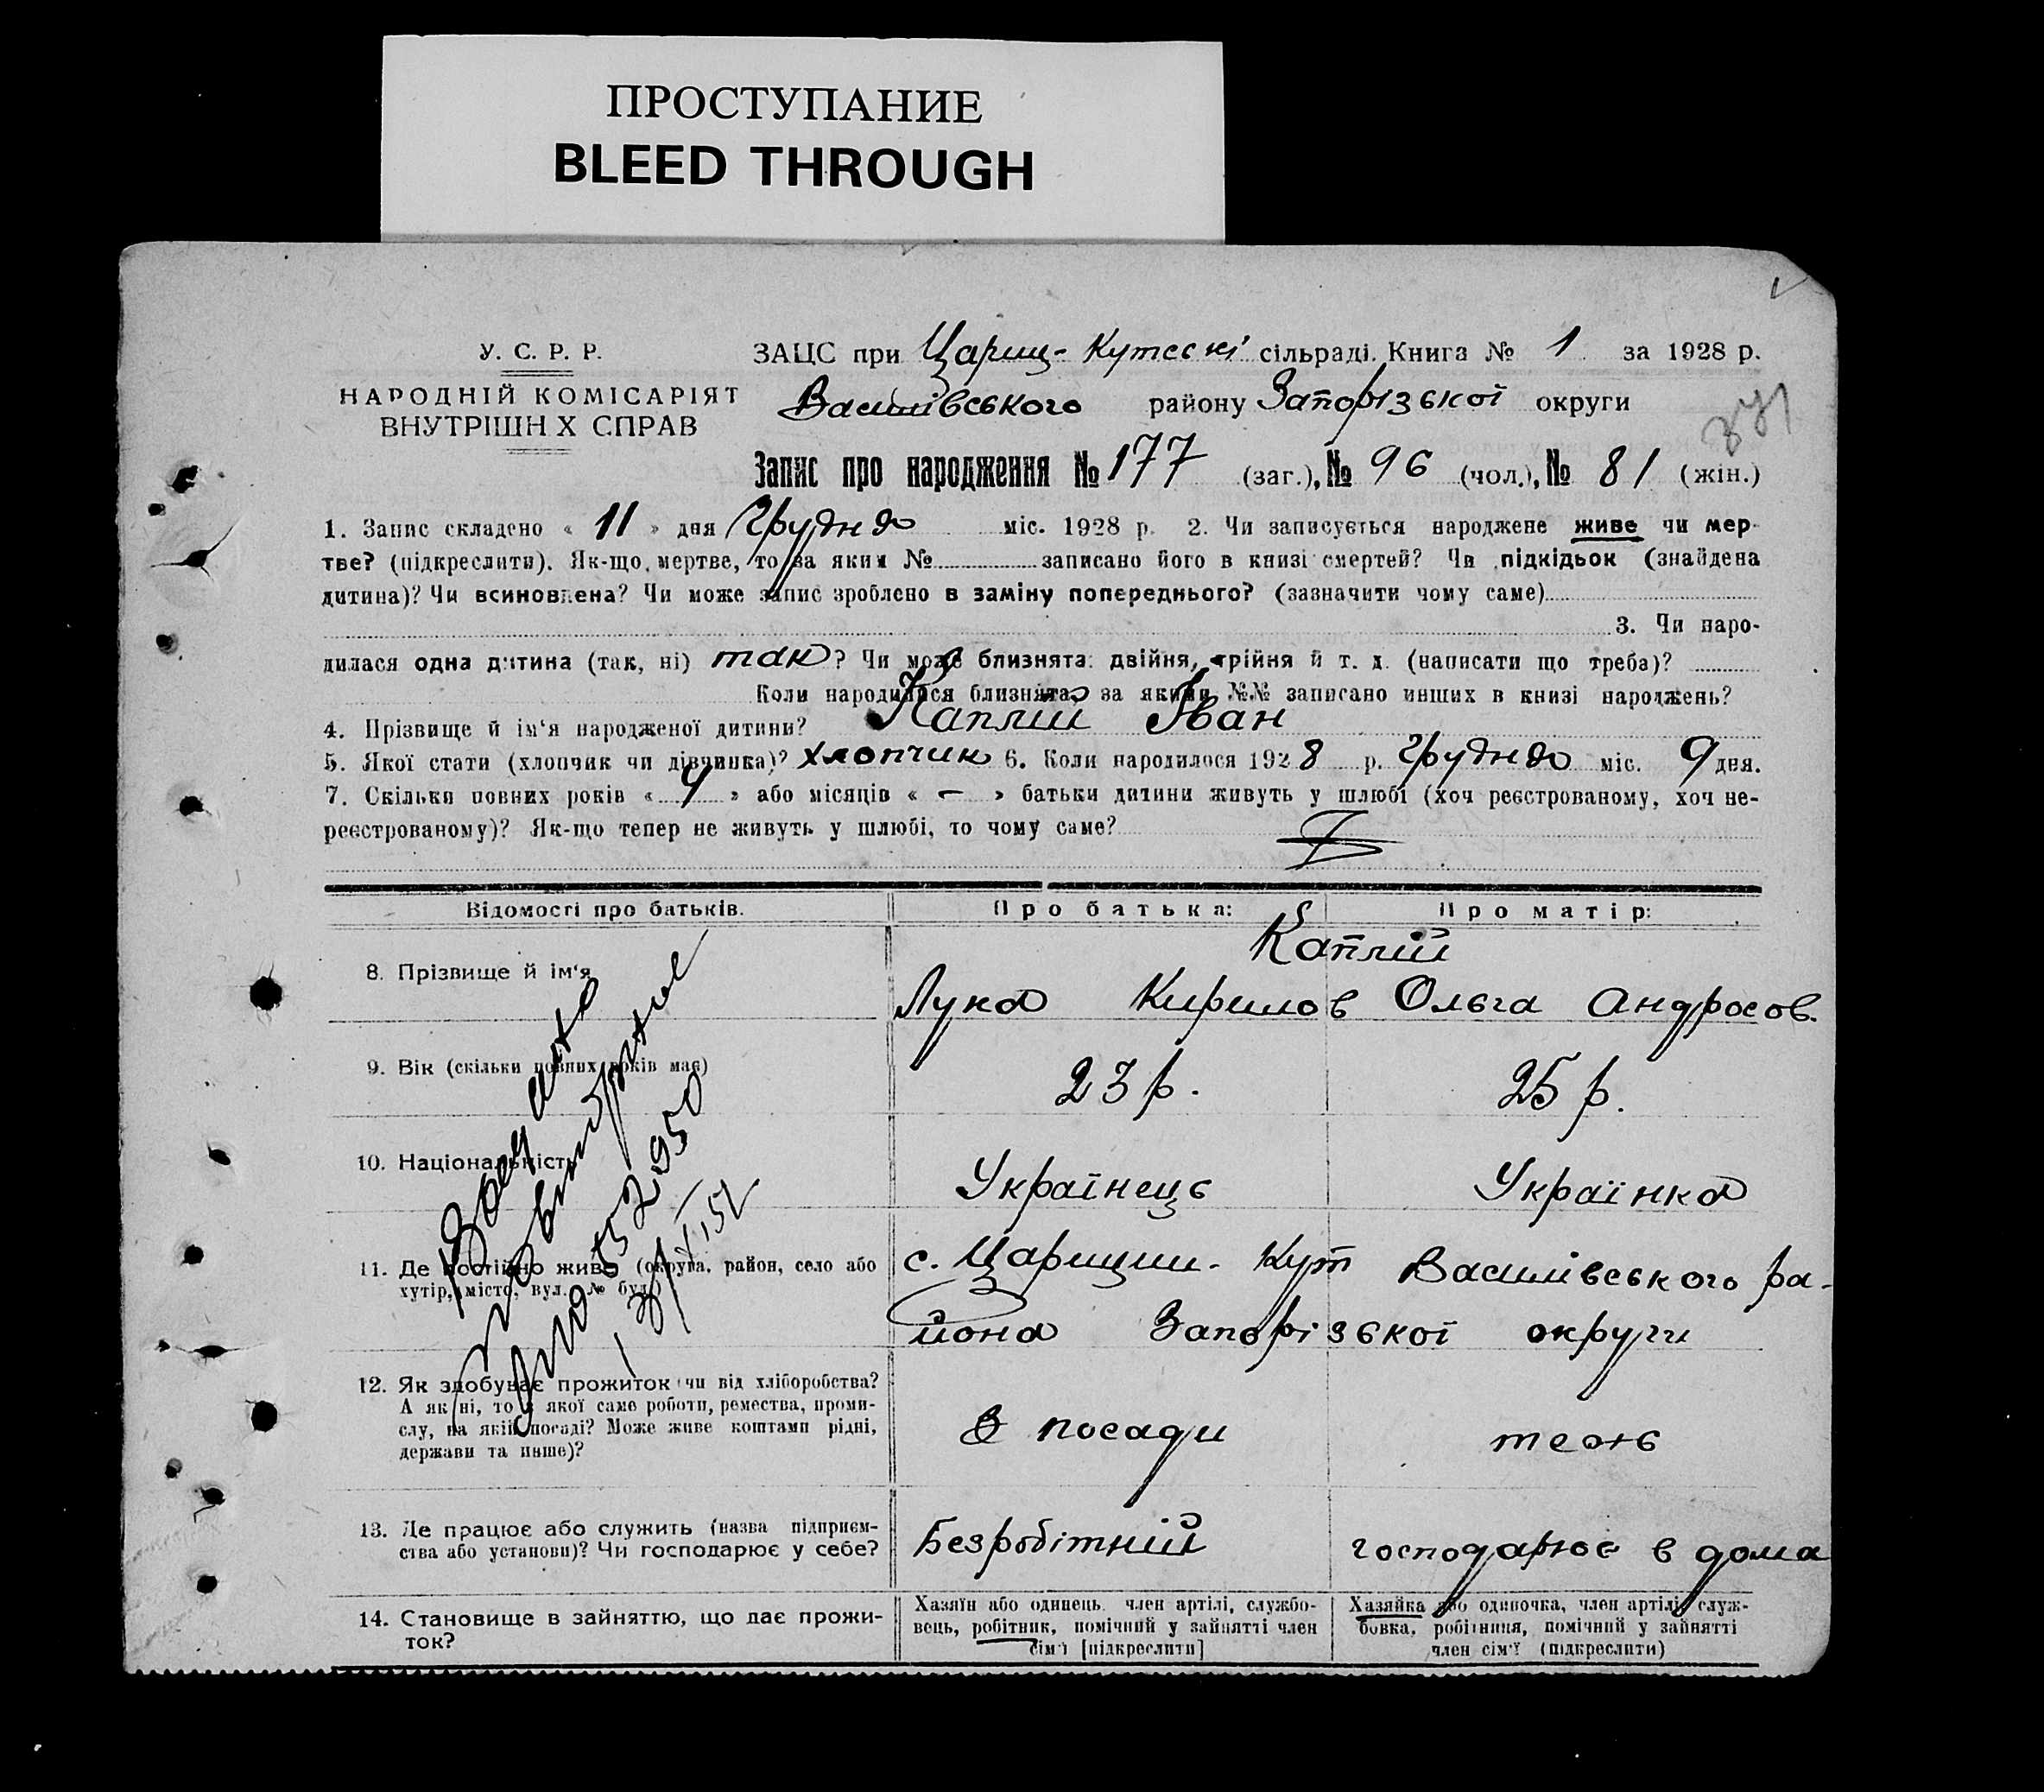 ПРОСТУПАНИЕ
BLEED THROUGH
У. С. Р. Р.
НАРОДНІЙ КОМІСАРІЯТ
ВНУТРІШН Х СПРАВ
ЗАЦС при Цариц-Кутескі сільраді. Книга № 1 за 1928 р.
Василівського району Запорізької округи
Запис про народження № 177 (заг.), № 96 (чол.), № 81 (жін.)
1. Запис складено « 11 » дня Грудня міс. 1928 р. 2. Чи записується народжене живе чи мер-
тве? (підкреслити). Як-що мертве, то за яким № записано його в книзі смертей? Чи підкідьок (знайдена
дитина)? Чи всиновлена? Чи може запис зроблено в заміну попереднього? (зазначити чому саме)
3. Чи наро-
дилася одна дитина (так, ні) так? Чи може близнята: двійня, трійня й т. д. (написати що треба)?
Коли народилися близнята, за якими №№ записано инших в книзі народжень?
4. Прізвище й ім‘я народженої дитини? Каплій Іван
5. Якої стати (хлопчик чи дівчинка)? хлопчик 6. Коли народилося 1928 р. Грудня міс. 9 дня.
7. Скільки повних років « 4 » або місяців « — » батьки дитини живуть у шлюбі (хоч реєстрованому, хоч не-
реєстрованому)? Як-що тепер не живуть у шлюбі, то чому саме?
Відомості про батьків. Про батька: Про матір:
Каплій
8. Прізвище й ім‘я Лука Кирилов Ольга Андросов.
9. Вік (скільки повних років має) 23 р. 25 р.
10. Національність Українець Українка
11. Де постійно живе (округа, район, село або
хутір, місто, вул. № буд.)
с. Царицин. Кут Василівського ра-
йона Запорізької округи
12. Як здобуває прожиток (чи від хліборобства?
А як ні, то з якої саме роботи, ремества, проми-
слу, на якій посаді? Може живе коштами рідні,
держави та инше)?
З посади теж
13. Де працює або служить (назва підприєм-
ства або установи)? Чи господарює у себе?
Безробітній господарює в дома
14. Становище в зайняттю, що дає прожи-
ток?
Хазяїн або одинець, член артілі, службо-
вець, робітник, помічний у зайнятті член
сім‘ї [підкреслити]
Хазяйка або одиночка, член артілі, служ-
бовка, робітниця, помічний у зайнятті
член сім‘ї (підкреслити)